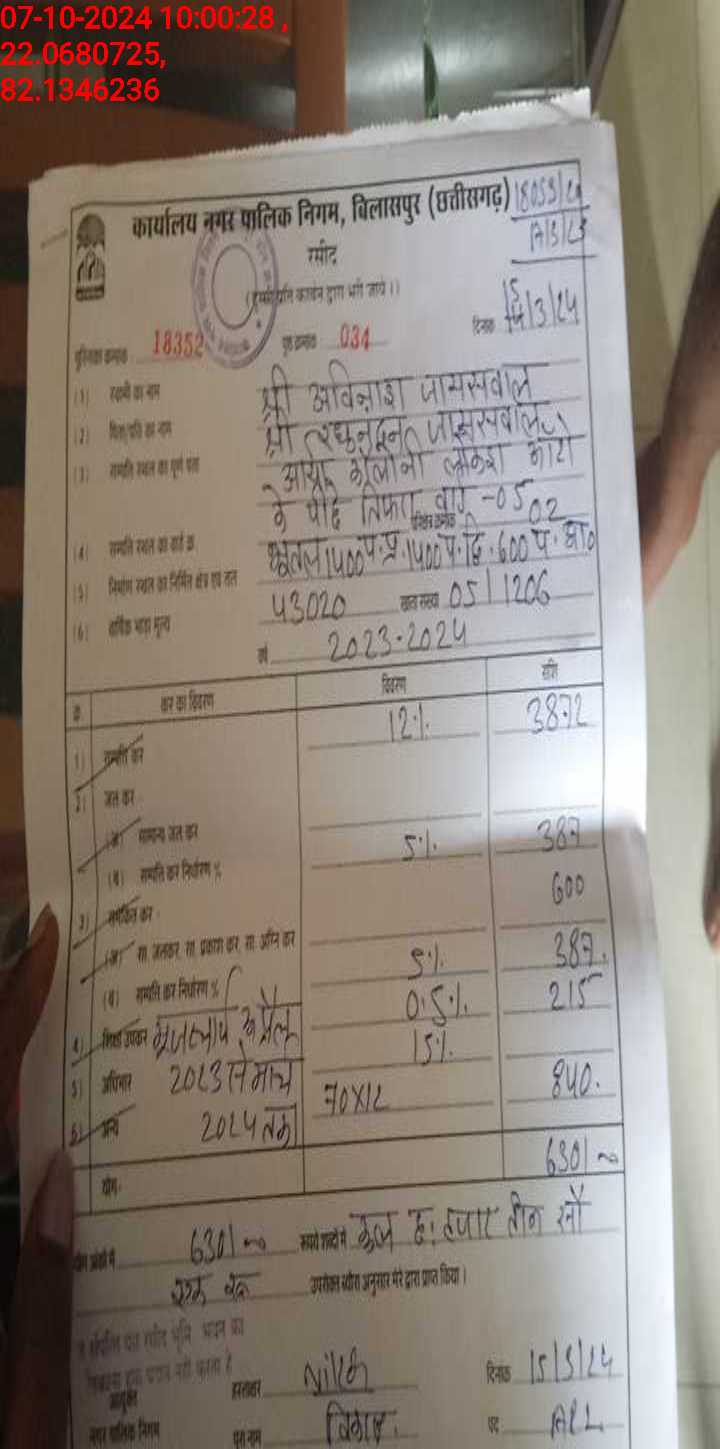 07-10-2024 10:00:28 ,
22.0680725,
82.1346236
कार्यालय नगर पालिक निगम, बिलासपुर (छत्तीसगढ़)
रसीद
दिनांक 15/3/24
पुस्तिका क्रमांक 18352 पृष्ठ क्रमांक 034
(1) स्वामी का नाम श्री अविनाश जायसवाल
(2) पिता/पति का नाम श्री रघुनंदन जायसवाल
(3) सम्पत्ति स्थल का पूर्ण पता आर्या कॉलोनी
के पीछे तिफरा वार्ड -05
(4) सम्पत्ति स्थल का वार्ड क्र. परिक्षेत्र क्रमांक 02
(5) निर्माण स्थल का निर्मित क्षेत्र एवं तल भूतल 1400 प.प्र.1400 प.द्वि.600 प.
(6) वार्षिक भाड़ा मूल्य 43020 खाता संख्या 05/1206
वर्ष 2023-2024
क्र. कर का विवरण विवरण राशि
1) सम्पत्ति कर 12% 3872
2) जल कर
(अ) सामान्य जल कर
(ब) सम्पत्ति कर निर्धारण % 5% 387
3) समेकित कर 600
(अ) सा. जलकर, सा. प्रकाश कर, सा. अग्नि कर
(ब) सम्पत्ति कर निर्धारण % 5% 387.
4) शिक्षा उपकर अप्रैल 0.5% 215
5) अधिभार 2023 से मार्च 15%
6) अन्य 2024 तक 70X12 840.
योग- 6301
योग अंकों में 6301 रूपये शब्दों में कुल छ: हजार तीन सौ
एक रू उपरोक्त ब्यौरा अनुसार मेरे द्वारा प्राप्त किया।
आयुक्त हस्ताक्षर दिनांक 15/3/24
नगर पालिक निगम पूरा नाम पद ARI